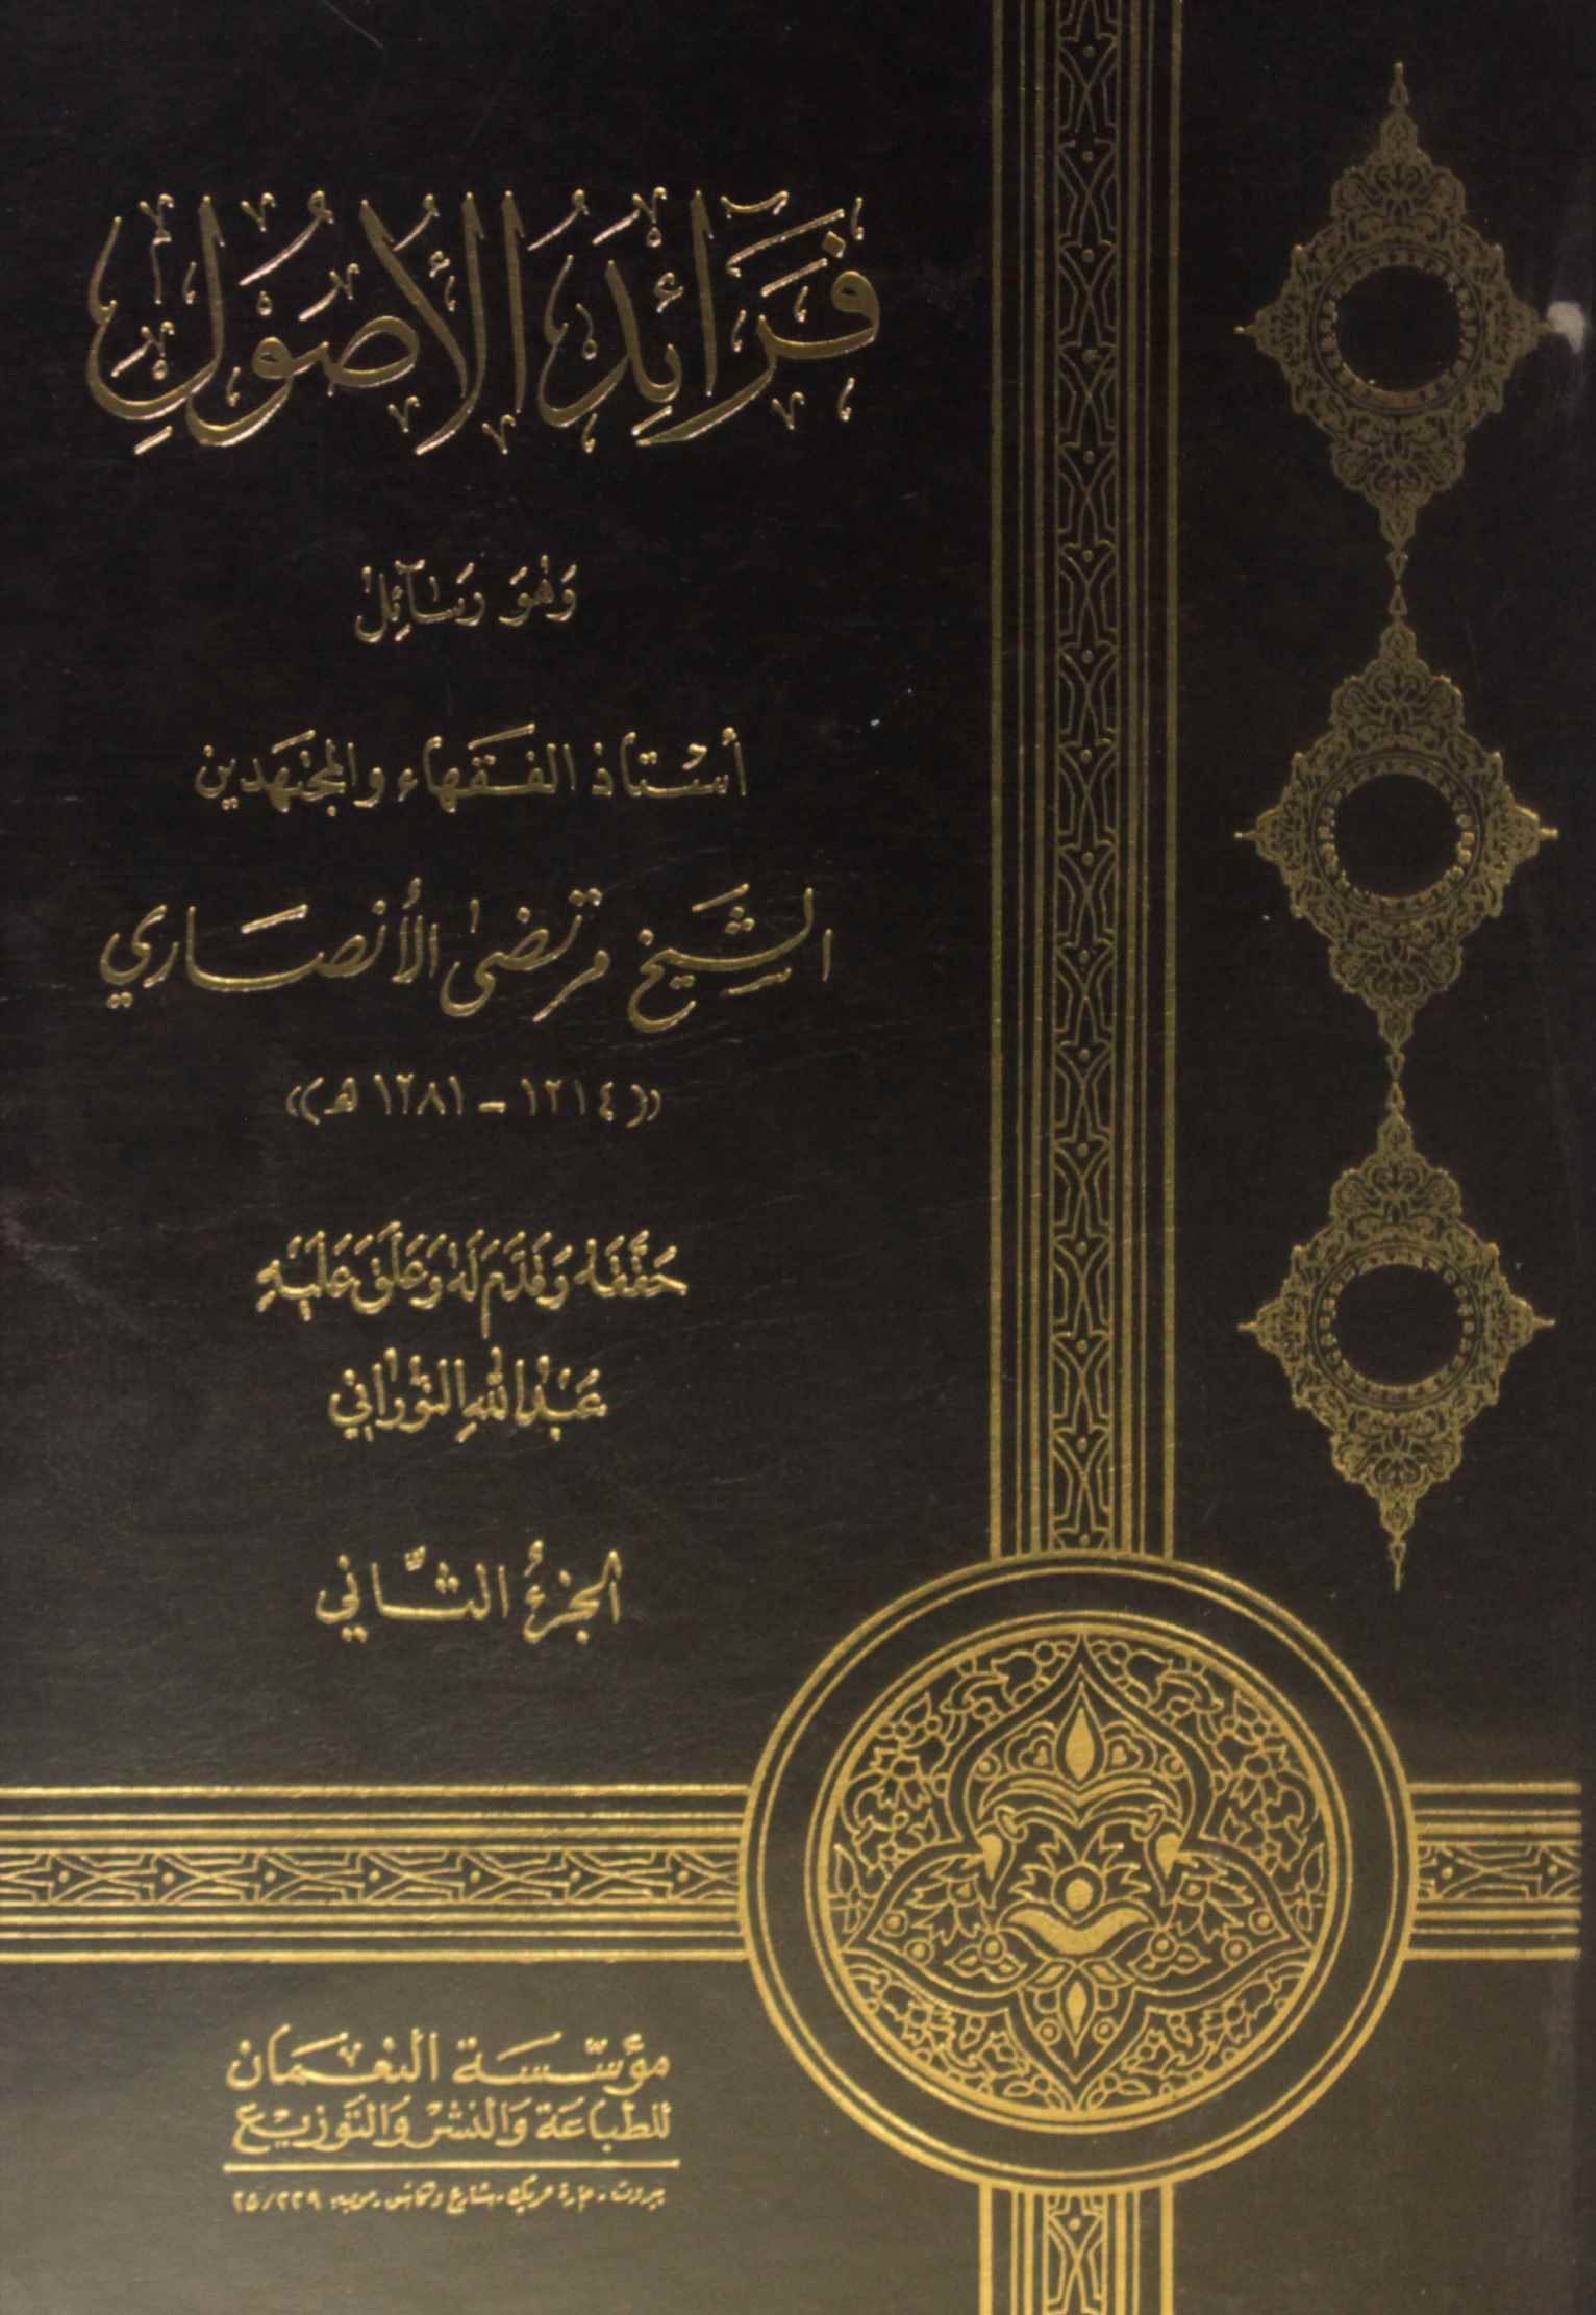 فَرَائِدُ الأُصُولِ
وَهُوَ رَسَائِل
أستاذ الفقهاء والمجتهدين
الشيخ مرتضى الأنصاري
«(١٢١٤ - ١٢٨١ هـ)»
حَقَّقَهُ وَقَدَّمَ لَهُ وَعَلَّقَ عَلَيْهِ
عَبْدُ اللهِ النُّورَانِي
الجزءُ الثَّاني
مؤسَّسَة النعمَان
للطبَاعَة وَالنشر وَالتَوزيع
بيروت - حارة حريك - شارع دكاش - ص.ب ٢٥/٢٢٩